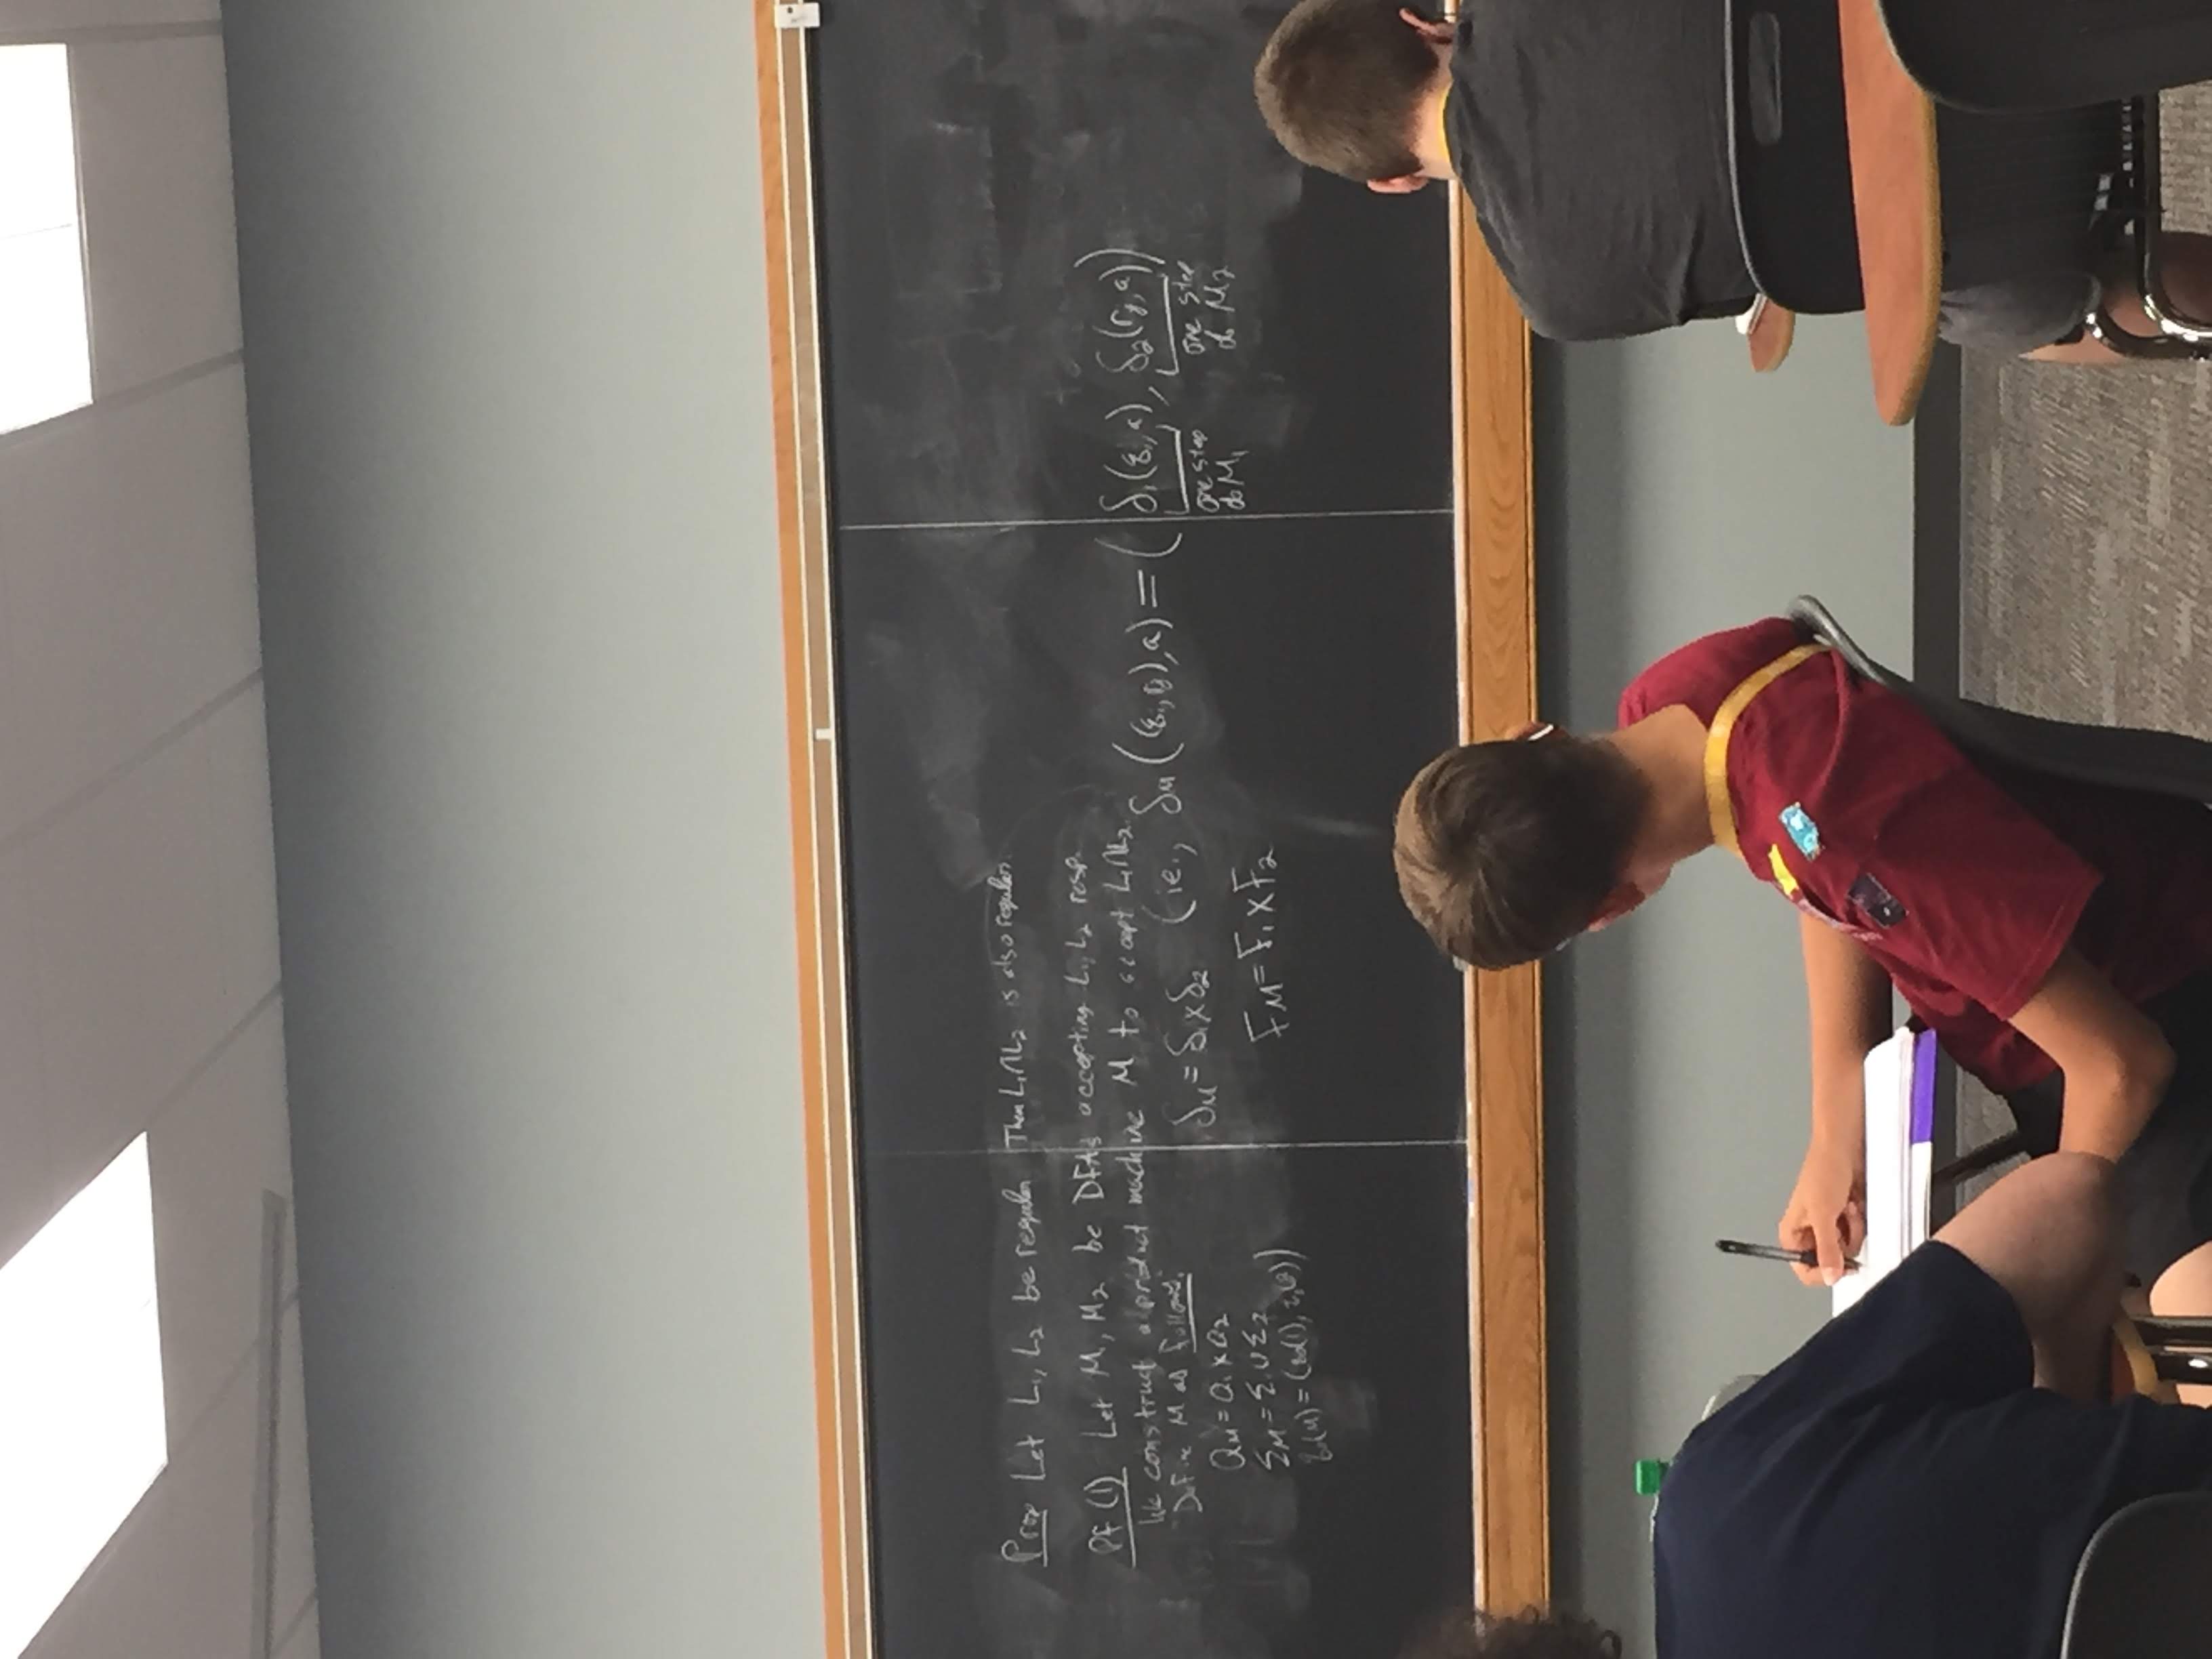 Prop Let L₁, L₂ be regular Then L₁∩L₂ is also regular.
Pf (1) Let M₁, M₂ be DFAs accepting L₁, L₂ resp.
We construct a product machine M to accept L₁∩L₂.
Define M as follows:
Q_M = Q₁ × Q₂
Σ_M = Σ₁ ∪ Σ₂
q₀(M) = (q₀(1), r₀(2))
δ_M = δ₁ × δ₂ (ie., δ_M((q_i, r_j), a) = (δ₁(q_i, a), δ₂(r_j, a))
one step of M₁
one step of M₂
F_M = F₁ × F₂